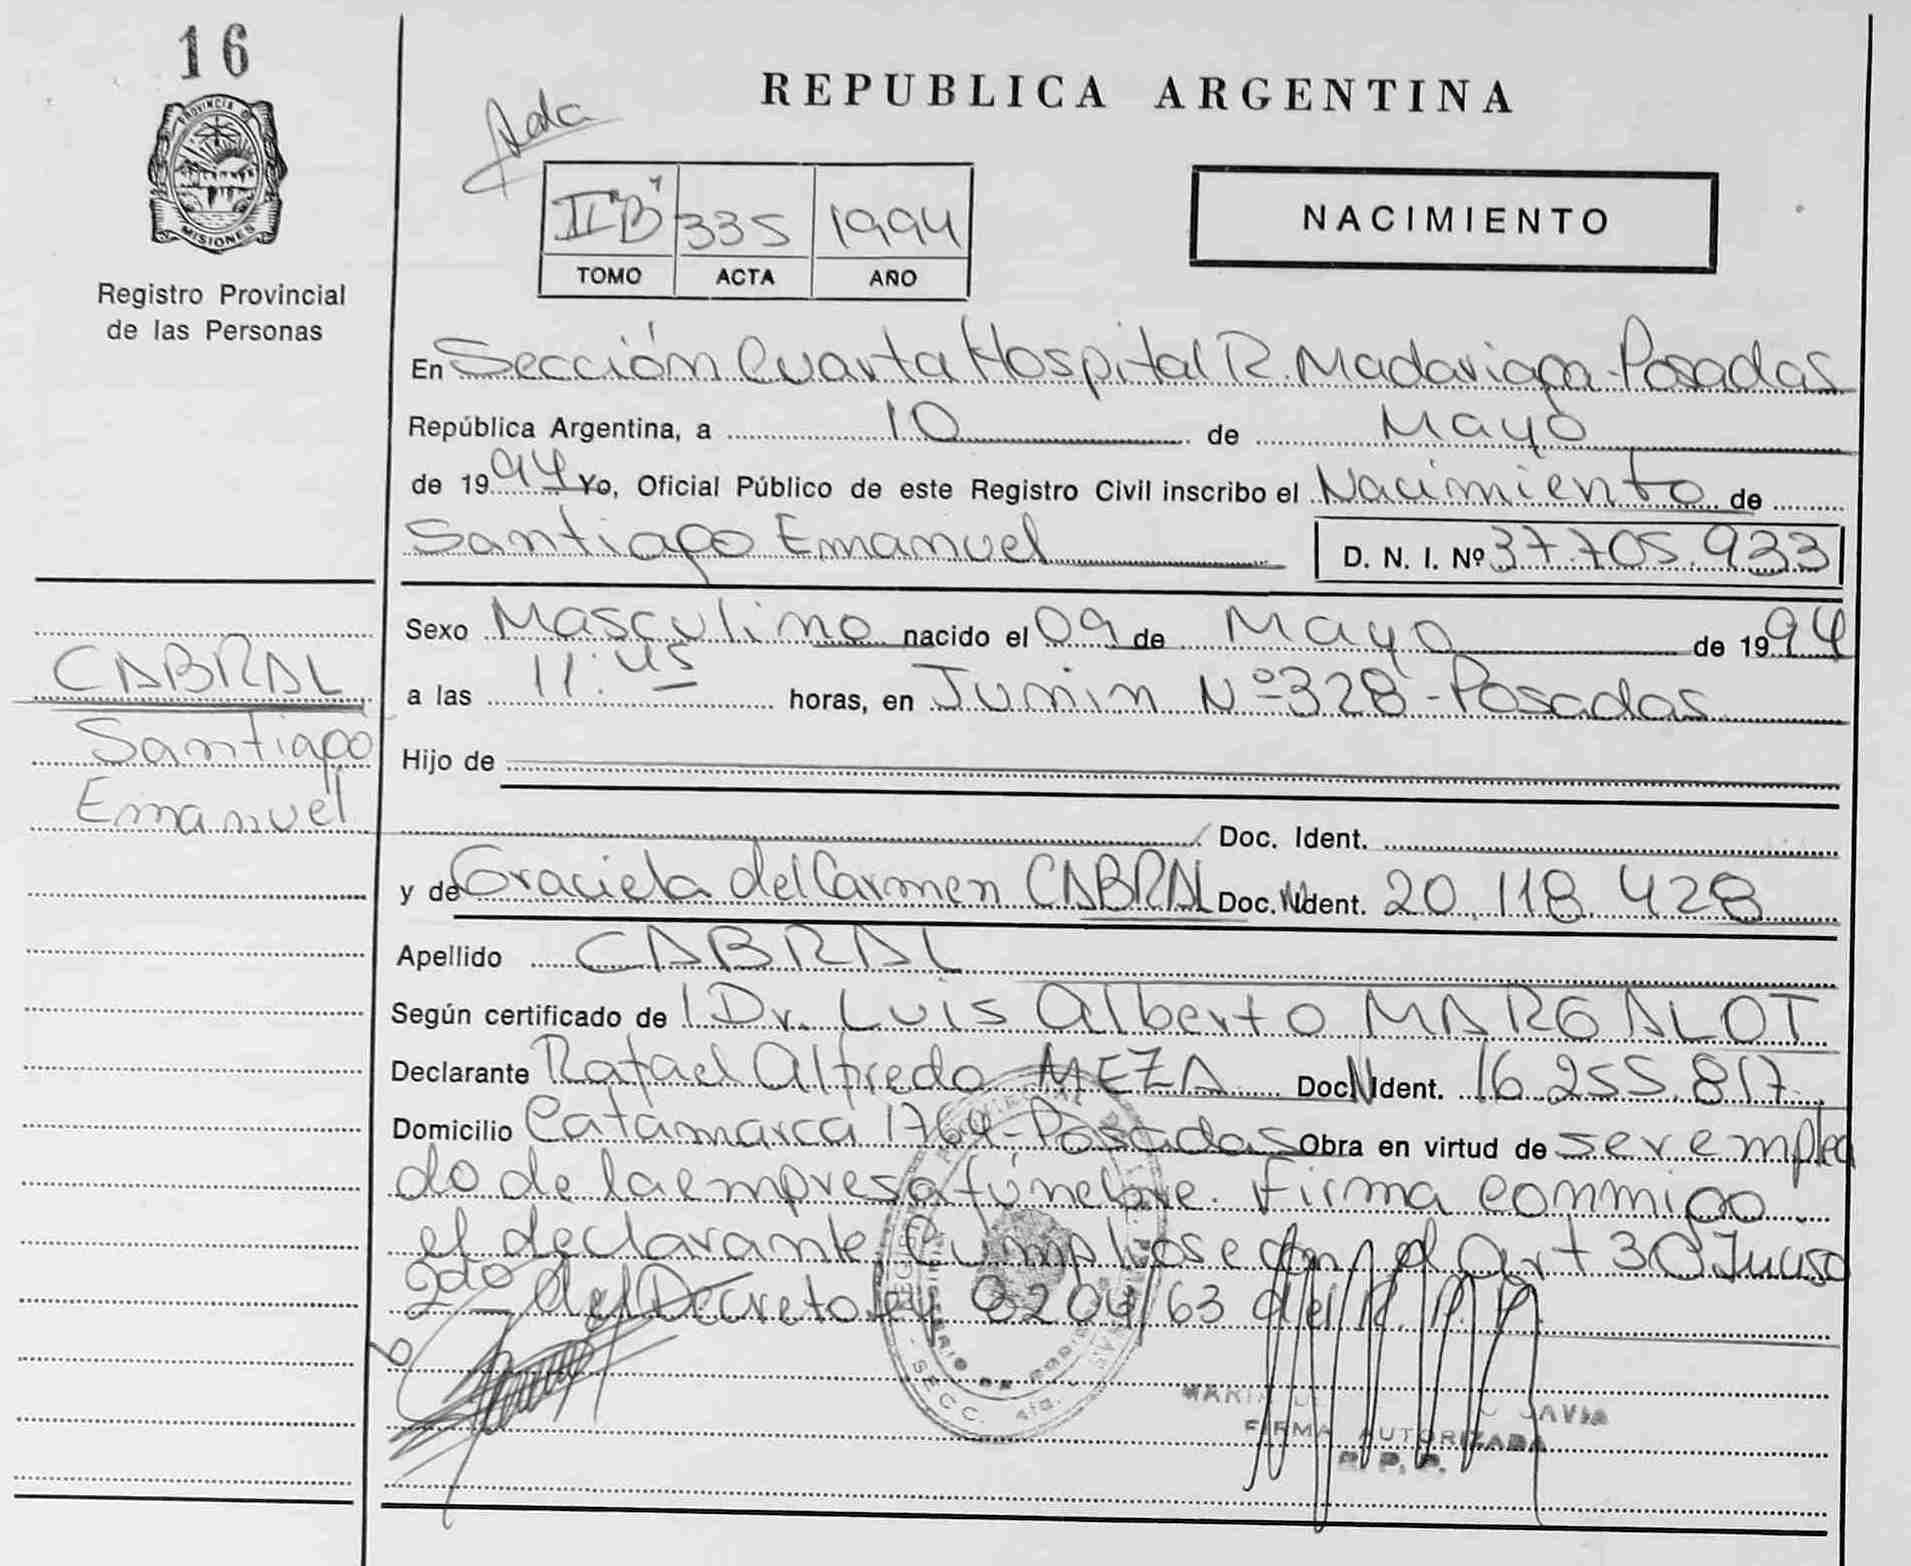 16
PROVINCIA DE
MISIONES
Registro Provincial
de las Personas
REPUBLICA ARGENTINA
II "B" 335 1994
TOMO ACTA AÑO
NACIMIENTO
En Sección Cuarta Hospital R. Madariaga - Posadas
República Argentina, a 10 de Mayo
de 1994 Yo, Oficial Público de este Registro Civil inscribo el Nacimiento de
Santiago Emanuel D. N. I. Nº 37.705.933
Sexo Masculino nacido el 09 de Mayo de 1994
a las 11:45 horas, en Junin Nº 328 - Posadas
CABRAL
Santiago
Emanuel
Hijo de
Doc. Ident.
y de Graciela del Carmen CABRAL Doc. N Ident. 20.118.428
Apellido CABRAL
Según certificado de l Dr. Luis Alberto MARGALOT
Declarante Rafael Alfredo MEZA Doc N Ident. 16.255.817
Domicilio Catamarca 1764 - Posadas Obra en virtud de ser emplea
do de la empresa fúnebre. Firma conmigo
el declarante. Cumpliose con el art 30 Inciso
2do del Decreto ley 8204/63 del R. P. P.
SECC. 4ta.
FIRMA AUTORIZADA
R. P. P.